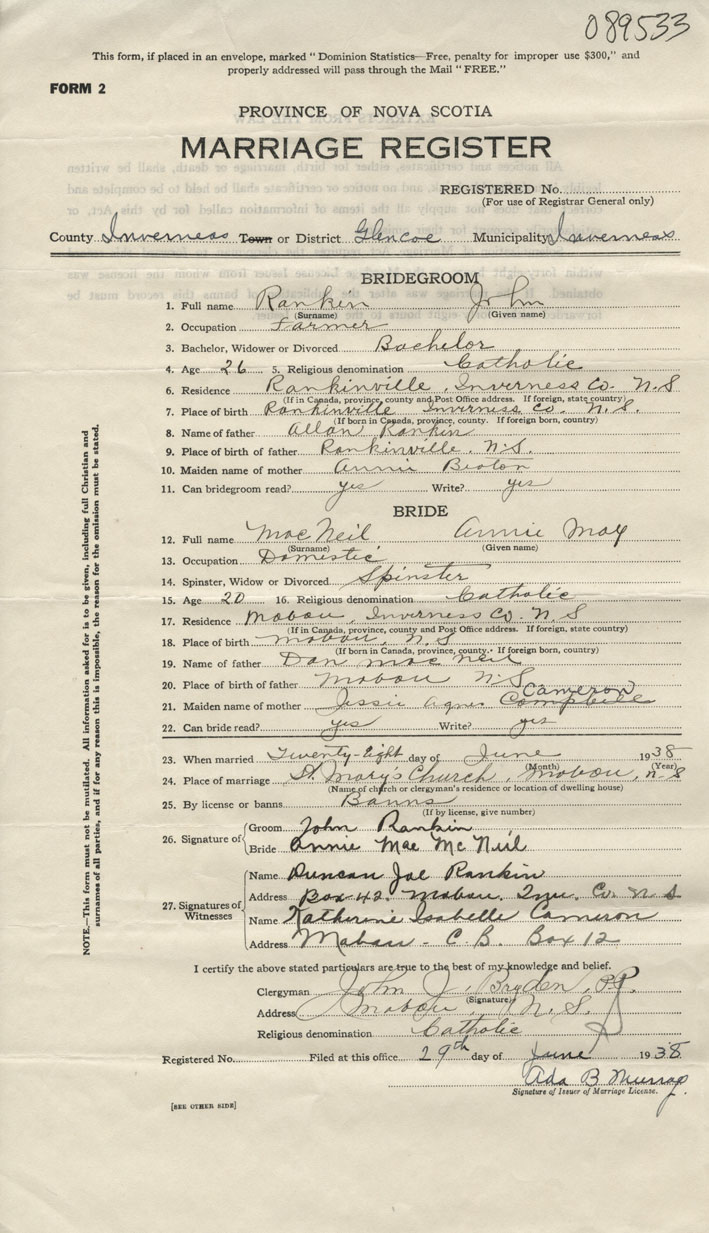 089533
This form, if placed in an envelope, marked "Dominion Statistics—Free, penalty for improper use $300," and
properly addressed will pass through the Mail "FREE."
FORM 2
PROVINCE OF NOVA SCOTIA
MARRIAGE REGISTER
REGISTERED No.
(For use of Registrar General only)
County Inverness Town or District Glencoe Municipality Inverness
BRIDEGROOM
1. Full name Rankin John
(Surname) (Given name)
2. Occupation Farmer
3. Bachelor, Widower or Divorced Bachelor
4. Age 26 5. Religious denomination Catholic
6. Residence Rankinville, Inverness Co. N.S
(If in Canada, province, county and Post Office address. If foreign, state country)
7. Place of birth Rankinville Inverness Co. N.S.
(If born in Canada, province, county. If foreign born, country)
8. Name of father Allan Rankin
9. Place of birth of father Rankinville. N.S.
10. Maiden name of mother Annie Beaton
11. Can bridegroom read? yes Write? yes
BRIDE
12. Full name MacNeil Annie May
(Surname) (Given name)
13. Occupation Domestic
14. Spinster, Widow or Divorced Spinster
15. Age 20 16. Religious denomination Catholic
17. Residence Mabou, Inverness Co. N.S
(If in Canada, province, county and Post Office address. If foreign, state country)
18. Place of birth Mabou, N.S
(If born in Canada, province, county. If foreign born, country)
19. Name of father Dan MacNeil
20. Place of birth of father Mabou N.S
Cameron
21. Maiden name of mother Jessie Agnes Campbell
22. Can bride read? yes Write? yes
23. When married Twenty-Eight day of June 1938
(Month) (Year)
24. Place of marriage St. Mary's Church, Mabou, N-S
(Name of church or clergyman's residence or location of dwelling house)
25. By license or banns Banns
(If by license, give number)
26. Signature of
Groom John Rankin
Bride Annie Mae McNeil
27. Signatures of Witnesses
Name Duncan Joe Rankin
Address Box 42. Mabou. Inv. Co. N S
Name Katherine Isabelle Cameron
Address Mabou - C.B. Box 12
I certify the above stated particulars are true to the best of my knowledge and belief.
Clergyman John J. Bryden, P.P.
(Signature)
Address Mabou, N.S.
Religious denomination Catholic
Registered No. Filed at this office 29th day of June 1938
Ada B Murray
Signature of Issuer of Marriage License.
[SEE OTHER SIDE]
NOTE.—This form must not be mutilated. All information asked for is to be given, including full Christian and
surnames of all parties, and if for any reason this is impossible, the reason for the omission must be stated.